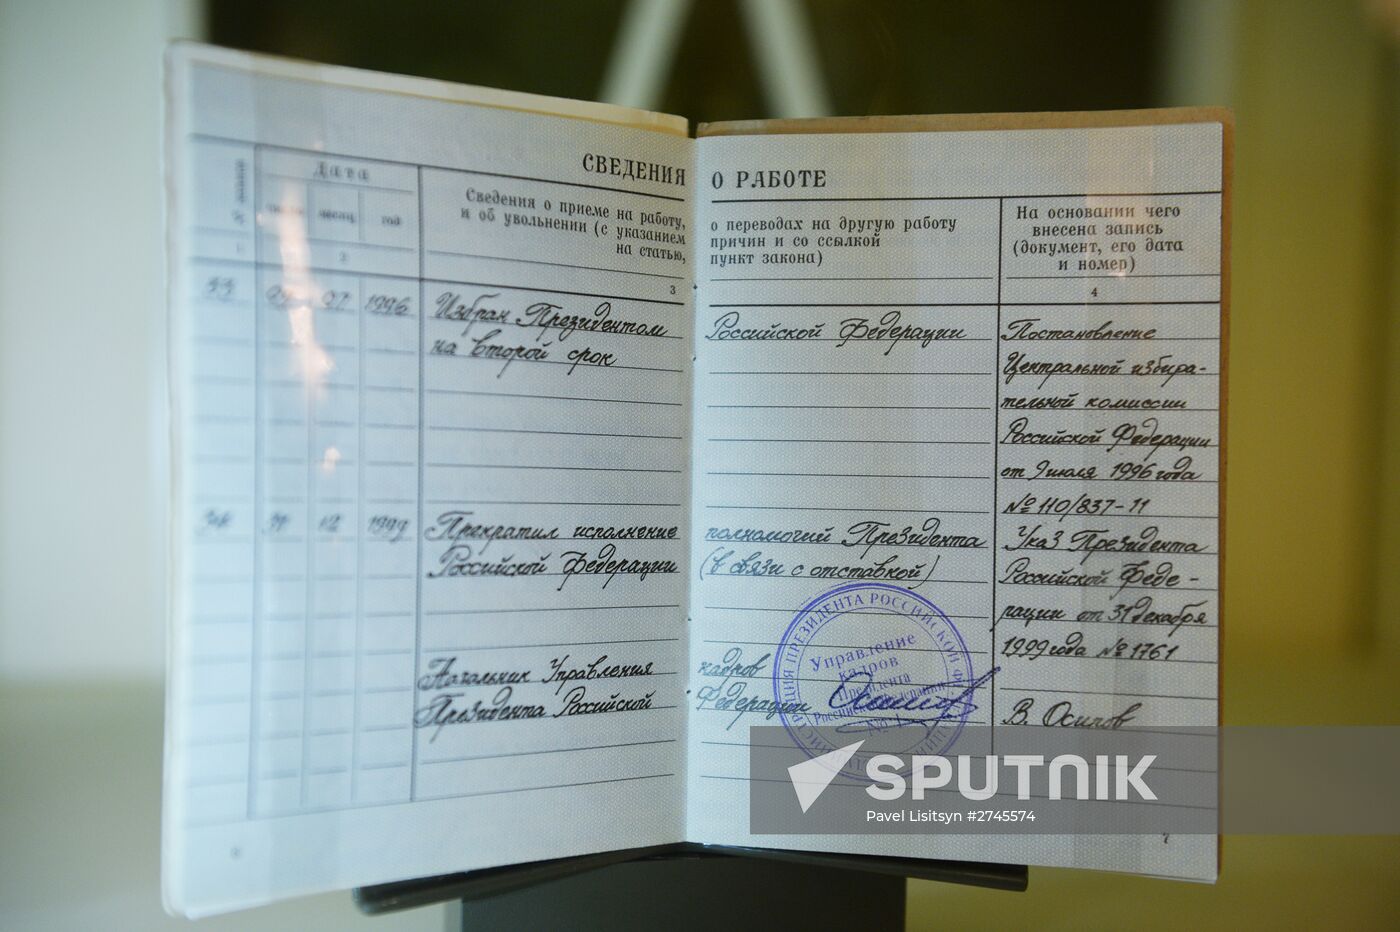 СВЕДЕНИЯ О РАБОТЕ
Дата
месяц
год
Сведения о приеме на работу, о переводах на другую работу
и об увольнении (с указанием причин и со ссылкой
на статью, пункт закона)
На основании чего
внесена запись
(документ, его дата
и номер)
1
2
3
4
33 07 1996 Избран Президентом Российской Федерации
на второй срок
Постановление
Центральной избира-
тельной комиссии
Российской Федерации
от 9 июля 1996 года
№ 110/837-11
34 31 12 1999 Прекратил исполнение полномочий Президента
Российской Федерации (в связи с отставкой)
Указ Президента
Российской Феде-
рации от 31 декабря
1999 года № 1761
Начальник Управления кадров
Президента Российской Федерации
В. Осипов
ПРЕЗИДЕНТА РОССИЙСКОЙ
Управление
кадров
Президента
Российской Федерации
№ 1
6
7
SPUTNIK
Pavel Lisitsyn #2745574